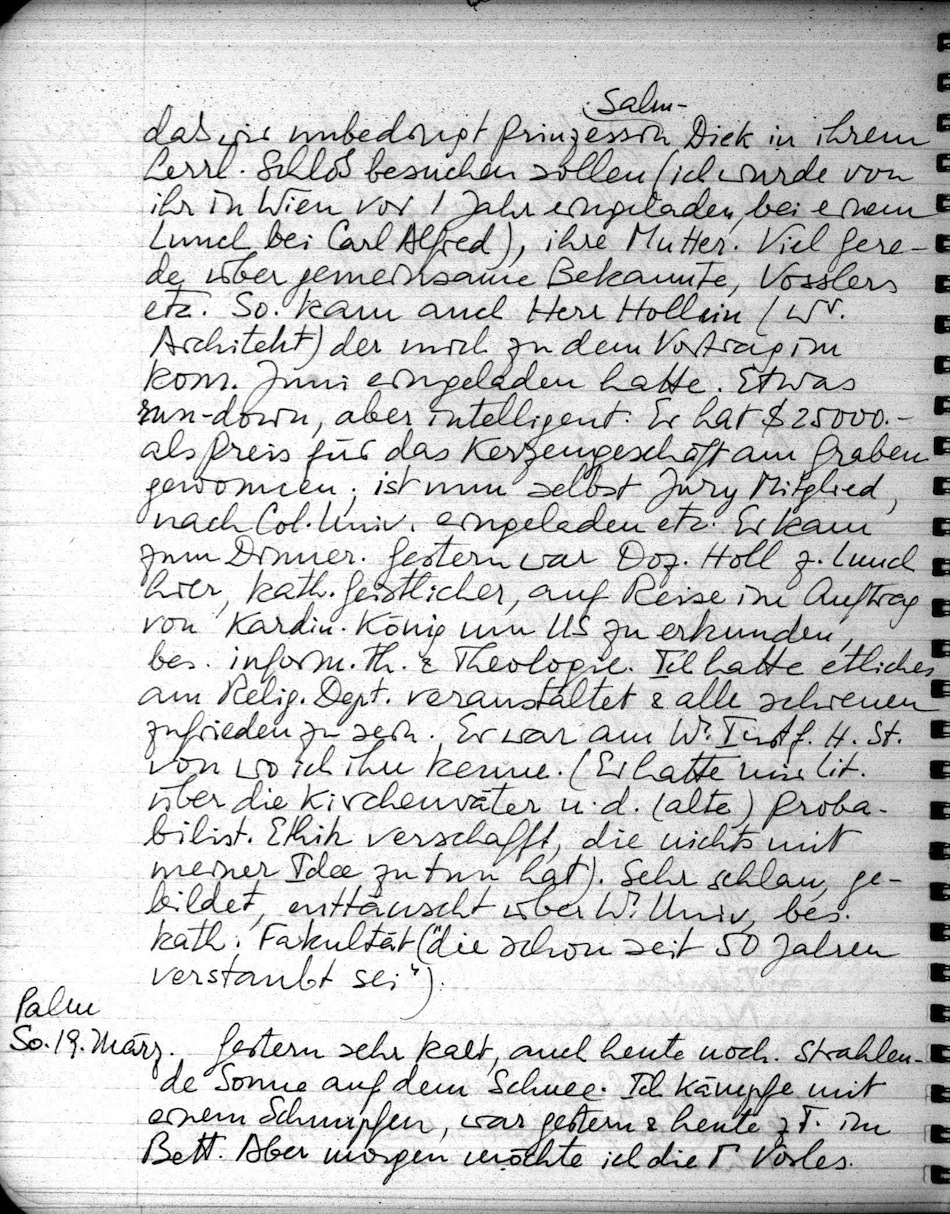 Salm-
daß wir unbedingt Prinzessin Dick in ihrem
herrl. Schloß besuchen sollen (ich wurde von
ihr in Wien vor 1 Jahr eingeladen, bei einem
Lunch bei Carl Alfred), ihre Mutter. Viel Gere-
de über gemeinsame Bekannte, Vosslers
etc. So kam auch Herr Hollein (Wr.
Architekt) der mich zu dem Vortrag im
kom. Juni eingeladen hatte. Etwas
run-down, aber intelligent. Er hat $ 25000.-
als Preis für das Kerzengeschäft am Graben
gewonnen, ist nun selbst Jury Mitglied,
nach Col. Univ. eingeladen etc. Er kam
zum Dinner. Gestern war Doz. Holl z. Lunch
hier, kath. Geistlicher, auf Reise im Auftrag
von Kardin. König um US zu erkunden,
bes. inform. Th. & Theologie. Ich hatte etliches
am Relig. Dept. veranstaltet & alle schienen
zufrieden zu sein. Er war am Wr. Inst. f. H. St.
von wo ich ihn kenne. (Er hatte mir Lit.
über die Kirchenväter u. d. (alte) proba-
bilist. Ethik verschafft, die nichts mit
meiner Idee zu tun hat). Sehr schlau, ge-
bildet, enttäuscht über Wr. Univ, bes.
kath. Fakultät ("die schon seit 50 Jahren
verstaubt sei").
Palm
So. 19. März. Gestern sehr kalt, auch heute noch. Strahlen-
de Sonne auf dem Schnee. Ich kämpfe mit
einem Schnupfen, war gestern & heute z T. im
Bett. Aber morgen möchte ich die Vorles.